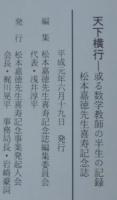 天下横行―或る数学教師の半生の記録
松本嘉徳先生喜寿記念誌
平成元年六月十九日　発行
編集　松本嘉徳先生喜寿記念誌編集委員会
代表・浅井淳平
発行　松本嘉徳先生喜寿記念事業発起人会
会長・梶川晃平　事務局長・岩崎豪誠